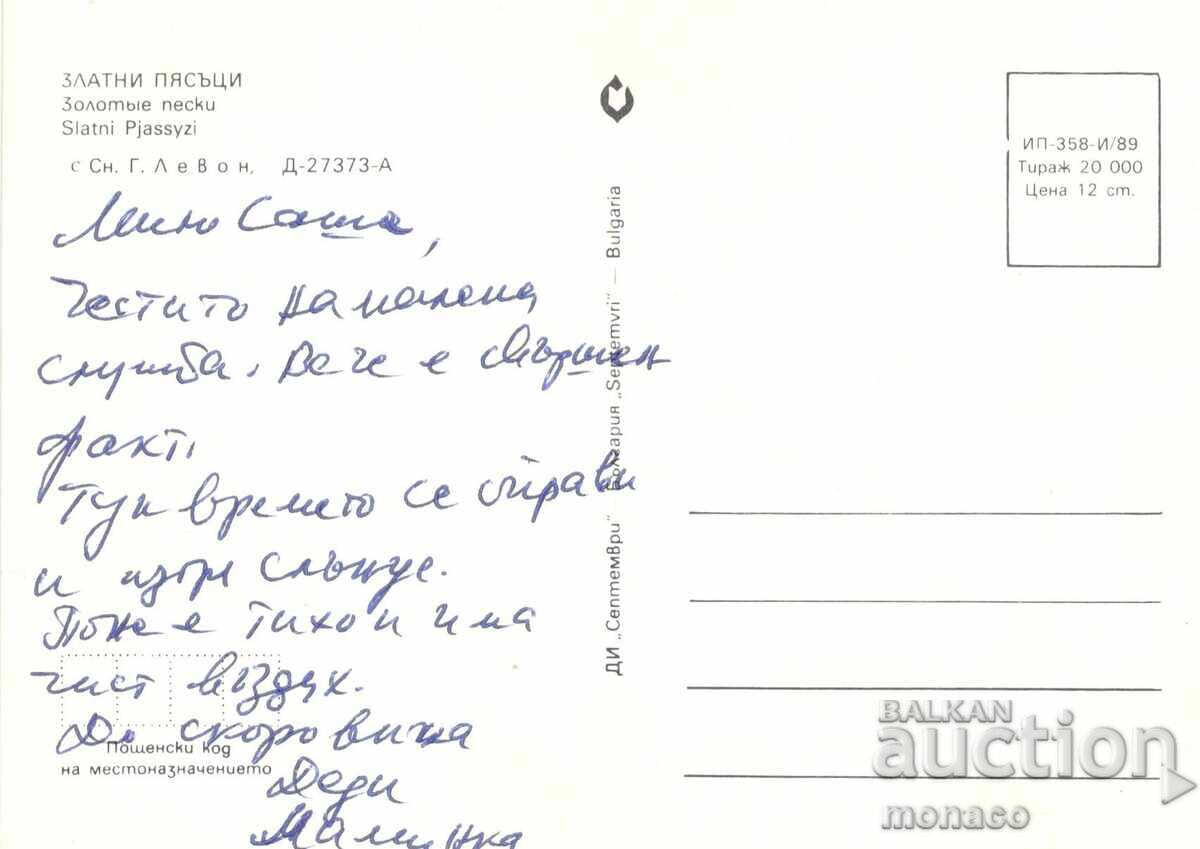 ЗЛАТНИ ПЯСЪЦИ
Золотые пески
Slatni Pjassyzi
с Сн. Г. Левон, Д-27373-А
Мило Саше,
Честито намалена
служба. Вече е свършен
факт.
Тук времето се оправи
и изгре слънце.
Поне е тихо и има
чист въздух.
До скоро виждане
Деди
Маминка
Пощенски код
на местоназначението
ДИ „Септември" Болгария „Septemvri" — Bulgaria
ИП-358-И/89
Тираж 20 000
Цена 12 ст.
BALKAN
auction
monaco